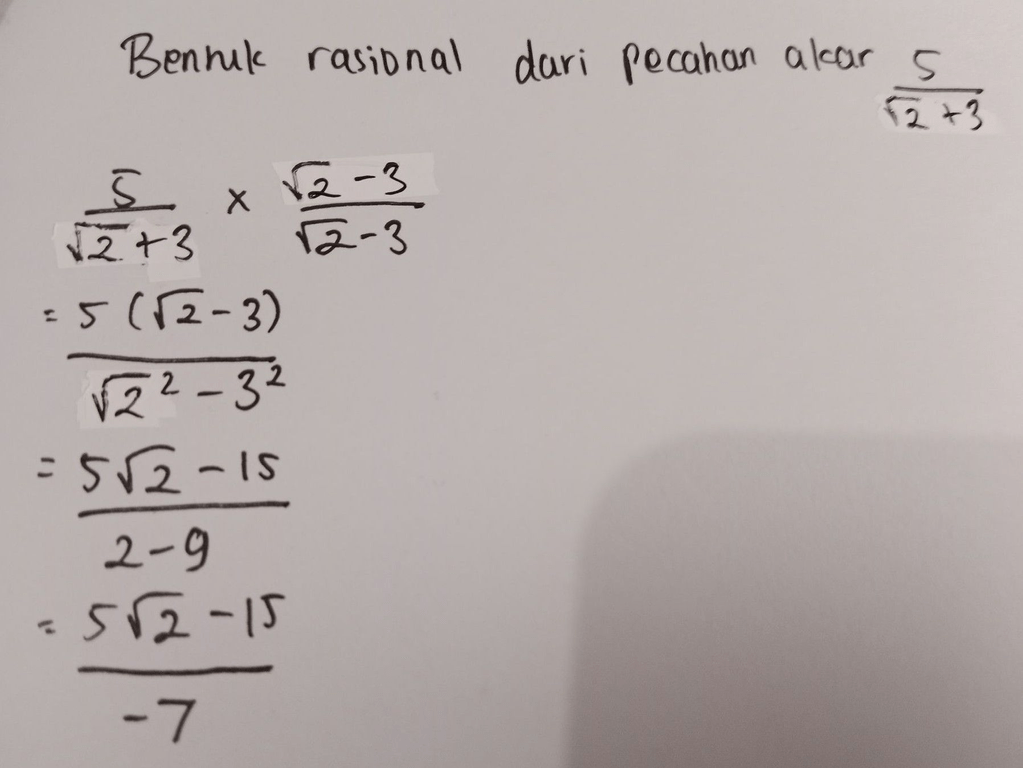 Bentuk rasional dari pecahan akar 5/(√2 + 3)
5/(√2 + 3) × (√2 - 3)/(√2 - 3)
= 5 (√2 - 3)/(√2² - 3²)
= (5√2 - 15)/(2 - 9)
= (5√2 - 15)/(-7)